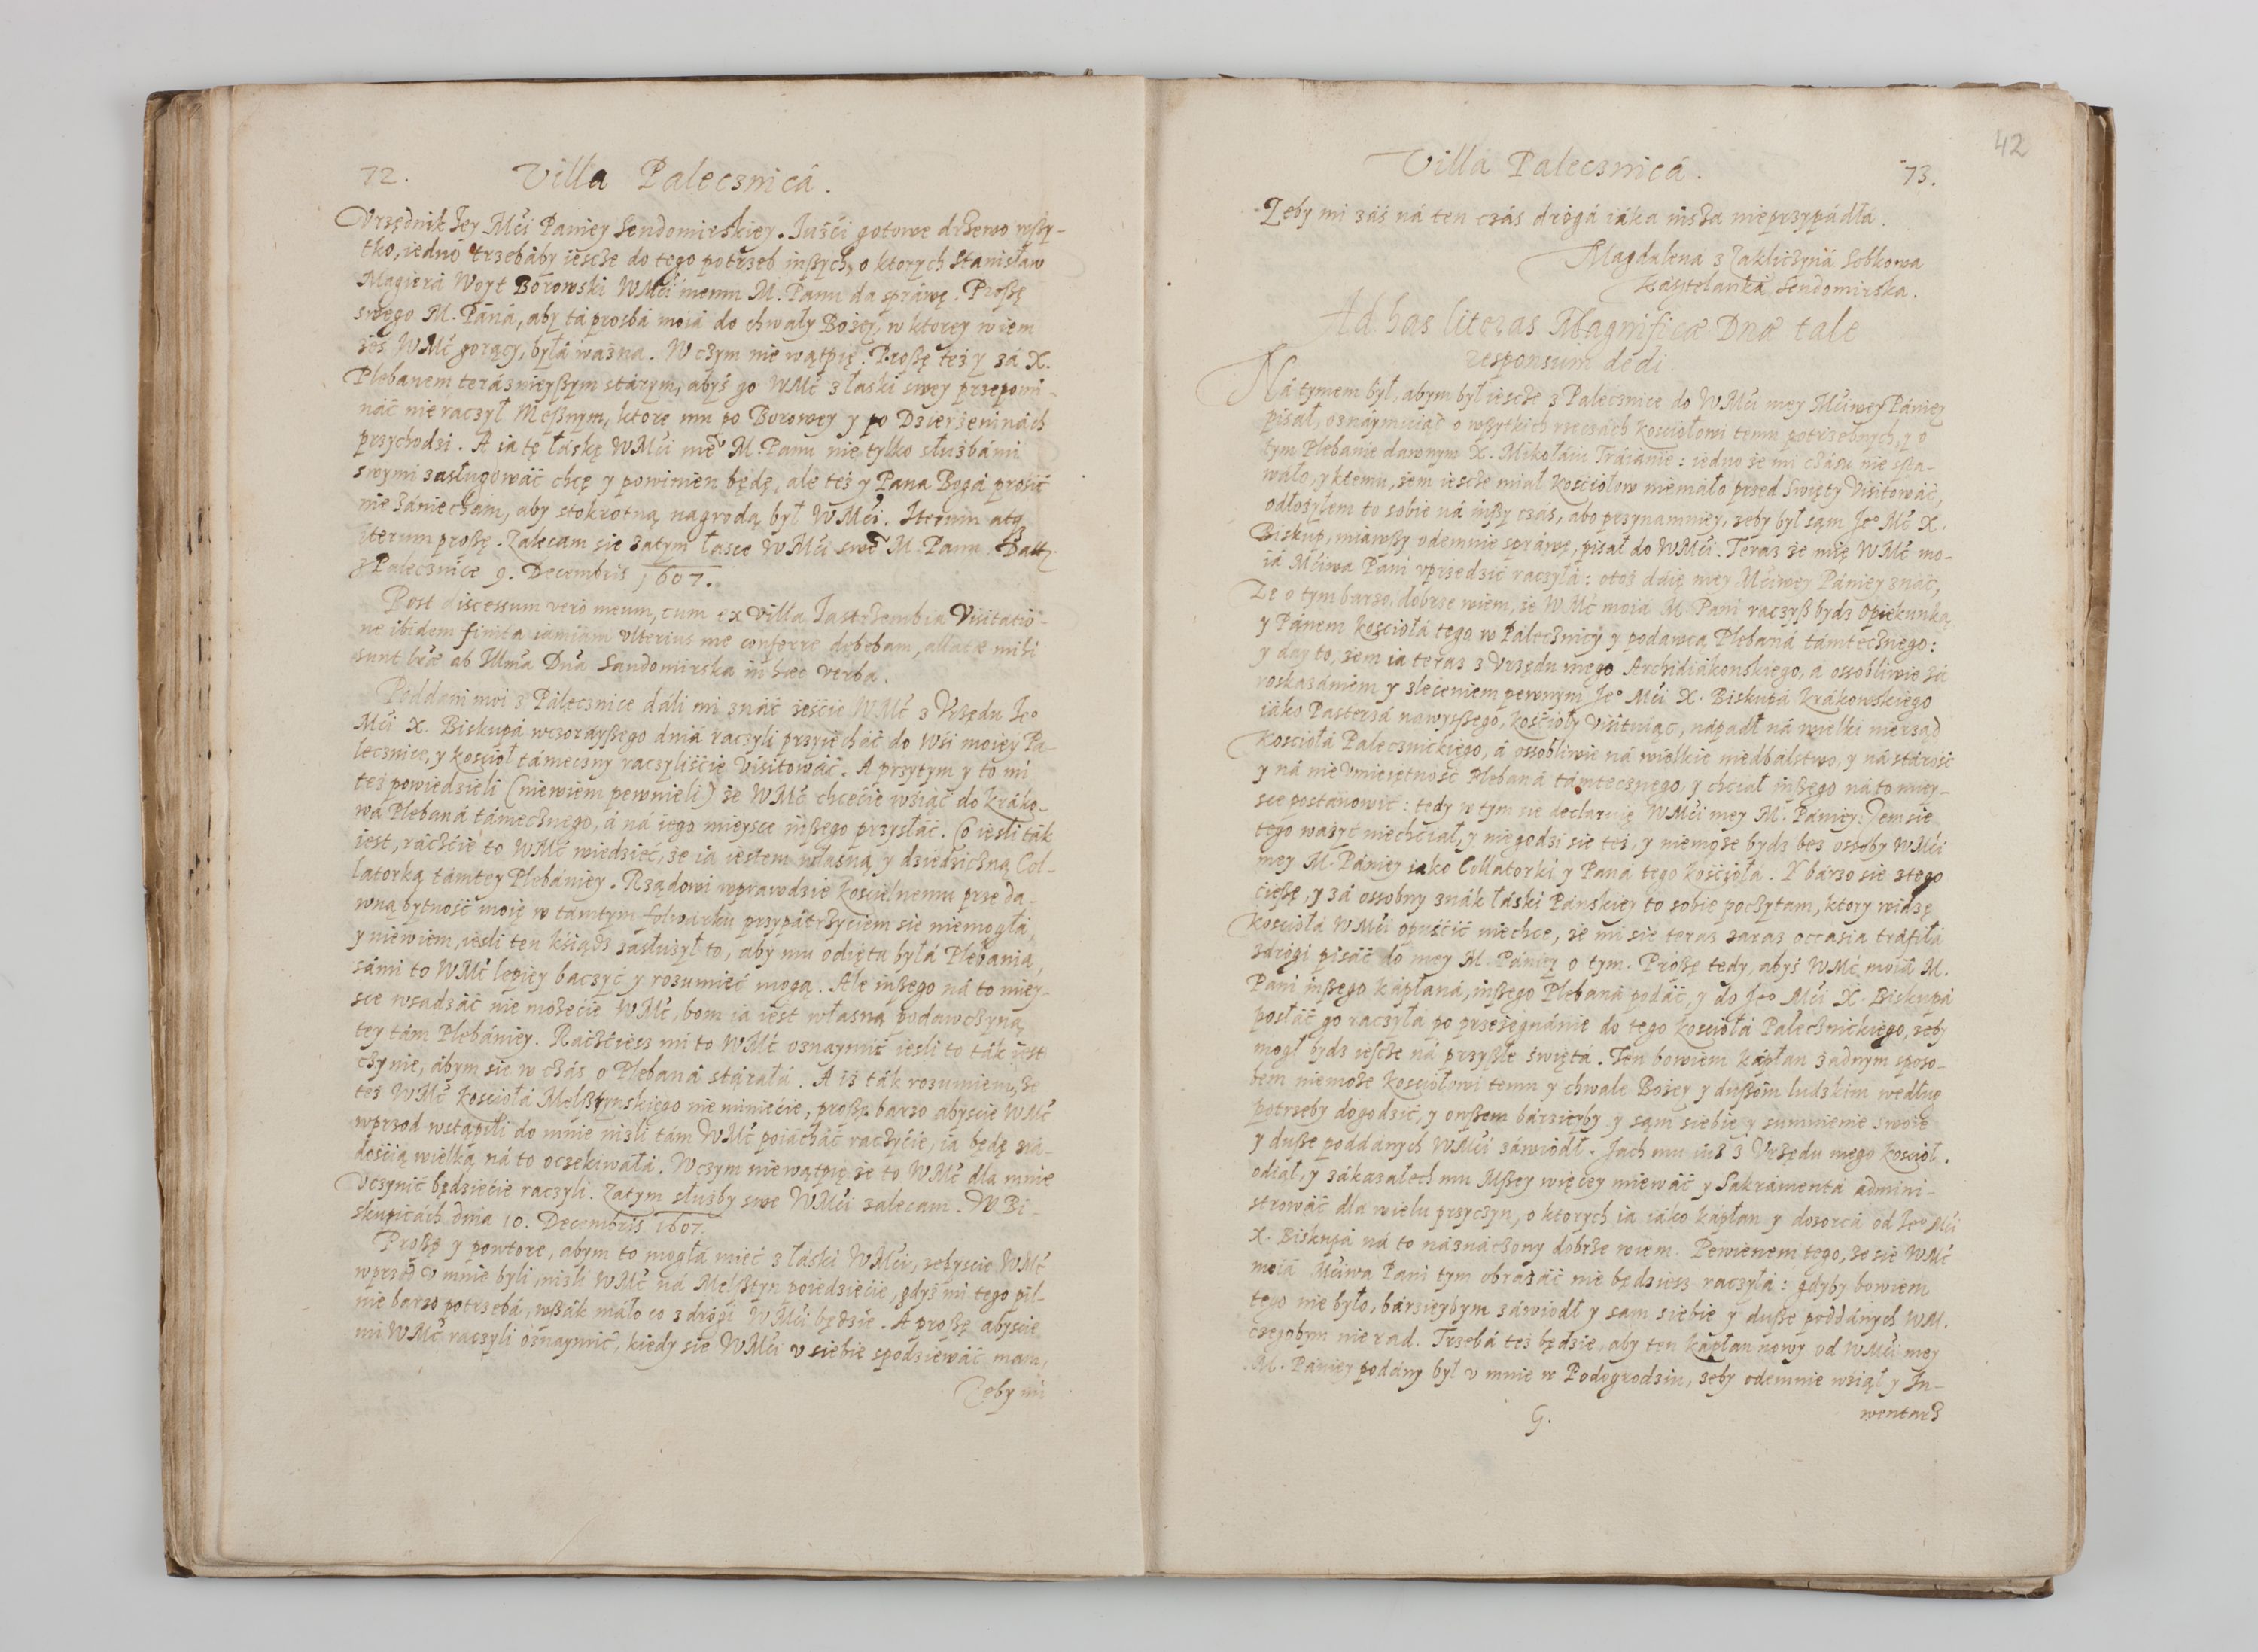 72.
Villa Palecznicá.
Vrzędnik Jey Mći Paniey Sendomirskiey. Iusći gotowe drzewo wßy-
tko, iednó trzebáby iescze do tego potrzeb inßych, o ktorych Stanisław
Magierá Woyt Borowski WMći memu M. Panu da spráwę. Proßę
swego M. Páná, aby tá prosbá moiá do chwały Bożey, w ktorey wiem
żeś WMć gorący, byłá ważna. W czym nie wątpię. Proßę też y zá X.
Plebanem teráznieyßym stárym, abyś go WMć z łaski swey przepomi-
náć nie raczył Meßnym, ktore mu po Borowey y po Dzierżeninách
przychodzi. A ia tę łáskę WMći meº M. Panu nie tylko służbámi
swymi zasługowáć chcę y powinien będę, ale też y Pana Bogá prosić
nie zániecham, aby stokrotną nagrodą był WMći. Iterum atq
iterum proßę. Zalecam sie zatym łasce WMći sweº M. Panu. Datt
z Palecznice 9. Decembris 1607.
Post discessum vero meum, cum ex villa Jastrzembia Visitatio-
ne ibidem finita iamiam vlterius me conferre debebam, allatæ mihi
sunt lræ ab Illma Dna Sandomirska in hæc verba.
Poddani moi z Pálecznice dáli mi znáć żeście WMć z Vrzędu Jeº
Mći X. Biskupá wczoráyßego dniá raczyli przyiecháć do Wśi moiey Pa-
lecznice, y kośćioł támeczny raczyliśćie Visitowáć. A przytym y to mi
też powiedzieli (niewiem pewnieli) że WMć chcećie wziąć do Kráko-
wá Plebaná támecznego, á ná iego mieysce inßego przysłáć. Co iesli ták
iest, ráczćie to WMć wiedzieć, że ia iestem własną y dziedziczną Col-
latorką támtey Plebániey. Rządowi wprawdzie kośćielnemu prze da-
wną bytność moię w támtym folwárku przypátrzyćiem sie niemogłá,
y niewiem, iesli ten ksiądz zasłużył to, aby mu odięta byłá Plebania,
sámi to WMć lepiey baczyć y rozumieć mogą. Ale inßego ná to miey-
sce wsadzáć nie możećie WMć, bom ia iest własną podawczyną
tey tám Plebániey. Ráczćiesz mi to WMć oznaymić iesli to ták iest
czy nie, ábym sie w czás o Plebaná stárałá. A iż ták rozumiem, że
też WMć kośćiołá Melßtynskiego nie miniećie, proßę barzo abyscie WMć
wprzod wstąpili do mnie nizli tám WMć poiácháć raczyćie, ia będę z rá-
dośćią wielką ná to oczekiwałá. W czym niewątpię że to WMć dla mnie
vczynić będziećie raczyli. Zatym służby swe WMći zalecam. W Bi-
skupicách dnia 10. Decembris 1607.
Proßę y powtore, abym to mogłá mieć z łáski WMći, żebyscie WMć
wprzod v mnie byli, niżli WMć ná Melßtyn poiedziećie, gdyż mi tego pil-
nie barzo potrzebá, wßák máło co z drogi WMći będzie. A proßę abyscie
mi WMć raczyli oznaymić, kiedy sie WMći v siebie spodziewáć mam,
Zeby mi
42
Villa Palecznicá.
73.
Zeby mi záś ná ten czás drogá iáka insza nieprzypádła.
Magdalena z Zakliczyná Sobkowa
Kásztelanka Sendomirska.
Ad has literas Magnificæ Dnæ tale
responsum dedi.
Ná tymem był, abym był iescze z Palecznice do WMći mey Mćiwey Pániey
pisał, oznáymuiąc o wßytkich rzeczách kosciołowi temu potrzebnych, y o
tym Plebanie dawnym X. Mikołáiu Tráiánie: iedno że mi czásu nie sta-
wáło, y ktemu, żem iescze miał Kośćiołow niemáło przed Swięty Visitowáć,
odłożyłem to sobie ná inßy czas, abo przynamniey, żeby był sąm Jeº Mć X.
Biskup, miawßy odemnie spráwę, pisał do WMći. Teraz że mię WMć mo-
iá Mćiwa Páni vprzedzić raczyłá: otoż dáię mey Mćiwey Pániey znáć,
Ze o tym barzo dobrze wiem, że WMć moiá M. Páni raczyß bydz Opiekunką
y Pánem kośćiołá tego w Pálecznicy y podawcą Plebaná támtecznego:
y day to, żem ia teraz z Vrzędu mego Archidiákonskiego, a ossobliwie zá
roskazániem y zleceniem pewnym Jeº Mći X. Biskupá Krákowskiego
iáko Pasterzá nawyßßego, kośćioły Visituiąc, nápadł ná wielki nierząd
kośćiołá Palecznickiego, á ossobliwie ná wielkie niedbálstwo, y ná stárość
y ná nie vmieiętność Plebaná támtecznego, y chciał inßego ná to miey-
sce postánowić: tedy w tym sie declaruię WMći mey M. Pániey: Żem sie
tego ważyć niechćiał, y niegodzi sie też, y niemoże bydz bez ossoby WMći
mey M. Pániey iáko Collatorki y Paná tego kośćiołá. Y bárzo sie z tego
ćießę, y zá ossobny znák łáski Pánskiey to sobie poczytam, ktory widzę
kośćiołá WMći opuśćić niechce, że mi sie teraz zaraz occasia tráfiłá
z drogi pisáć do mey M. Pániey o tym. Proßę tedy, abyś WMć moiá M.
Páni inßego kápłaná, inßego Plebaná podáć, y do Jeº Mći X. Biskupá
posłáć go raczyłá po przeżegnánie do tego kośćiołá Palecznickiego, żeby
mogł bydz iescze ná przyßłe święta. Ten bowiem kápłan żadnym sposo-
bem niemoże kośćiołowi temu y chwale Bożey y dußom ludzkim według
potrzeby dogodzić, y owßem bárzieyby y sąm siebie y sumnienie swoie
y duße poddánych WMći záwiodł. Jach mu iuż z Vrzędu mego kośćioł
odiął, y zákazałech mu Mßey więcey miewáć y Sakrámentá admini-
strowáć dla wielu przyczyn, o ktorych ia iáko kápłan y dozorcá od Jeº Mći
X. Biskupá ná to náznáczony dobrze wiem. Pewienem tego, że się WMć
moiá Mćiwa Páni tym obrażáć nie będziesz raczyłá: gdyby bowiem
tego nie było, bárzieybym záwiodł y sam siebie y duße poddánych WM.
czegobym nie rad. Trzebá też będzie, aby ten kápłan nowy od WMći mey
M. Pániey podány był v mnie w Podogrodziu, żeby odemnie wziął y In-
G.
wentarz